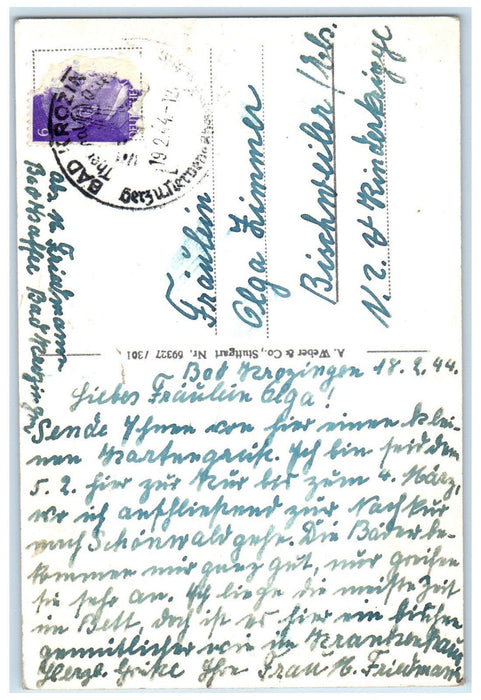 BAD KROZINGEN
19.2.44
Bad Krozingen
Fräulein
Olga Zimmer
Bischweiler / Els.
A. Weber & Co., Stuttgart Nr. 59327 / 301
Bad Krozingen 18.2.44
Liebes Fräulein Olga!
Sende Ihnen von hier einen klei-
nen Kartengruß. Ich bin seid den
5.2. hier zur Kur bis zum 4. März,
wo ich anschließend zur Nachkur
nach Schönwald gehe. Die Bäder be-
kommen mir ganz gut, nur greifen
sie sehr an. Ich liege die meiste Zeit
im Bett, doch ist es hier ein bischen
gemütlicher wie im Krankenhaus
Herzl. Grüße Ihre Frau M. Friedmann